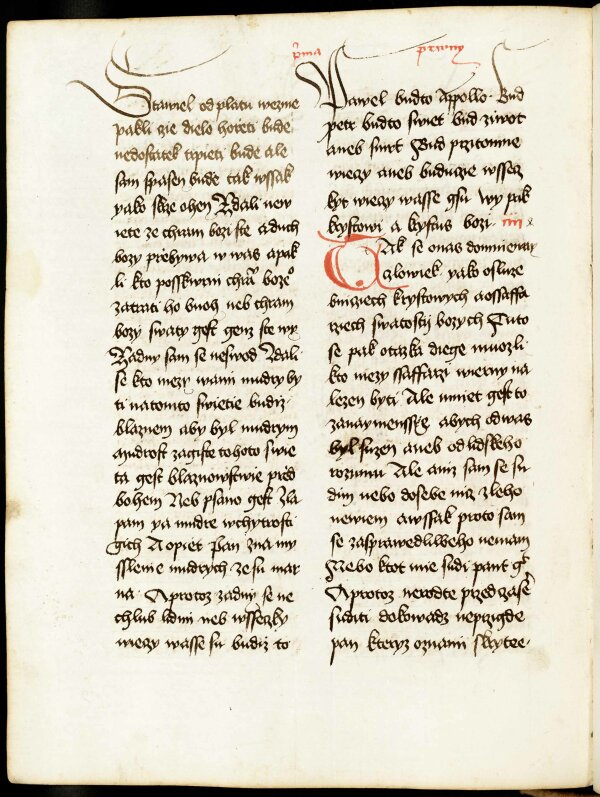 prma prwny
Stawiel od platu wezme
pakli gie dielo horeti bude
nedostatek trpieti bude ale
sam spasen bude tak wssak
yako skrze ohen Zdali new
iete ze chram bozi ste a duch
bozy przebywa w was a pak
li kto posskwrni chram bozeo
zatrati ho buoh neb chram
bozy swaty gest genz ste wy
Zadny sam se neswod Zdali
se kto mezy wami mudry by
ti na tomto swietie budiz
blaznem aby byl mudrym
mudrost zagiste tohoto swie
ta gest blaznowstwie przed
bohem Neb psano gest Zla
pam ya mudre w chytrosti
gich A opiet Pan zna my
sslenie mudrych ze su mar
na A protoz zadny se ne
chlub lidmi neb wsseczky
wieczy wasse su budiz to
Pawel budto Appollo Bud
petr budto swiet bud ziwot
aneb smrt Bud przitomne
wieczy aneb buduczie wssecz
kyt wieczy wasse gsu wy pak
krystowi a krystus bozi iiii k
Tak se o nas domnieway
czlowiek yako o sluze
bniciech krystowych a o ssaffa
rziech swatostij bozych Tuto
se pak otazka diege muozli
kto mezy ssaffarzi wierny na
lezen byti Ale mniet gest to
za naymenssye abych od was
byl suzen aneb od lidskeho
rozumu Ale aniz sam se su
dim nebo do sebe nicz zleho
newiem a wssak proto sam
se za sprawedliweho nemam
Nebo ktoz mie sudi pant gt
A protoz nerodte przed czasem
suditi dokowadz neprzigde
pan kteryz oznami skryte